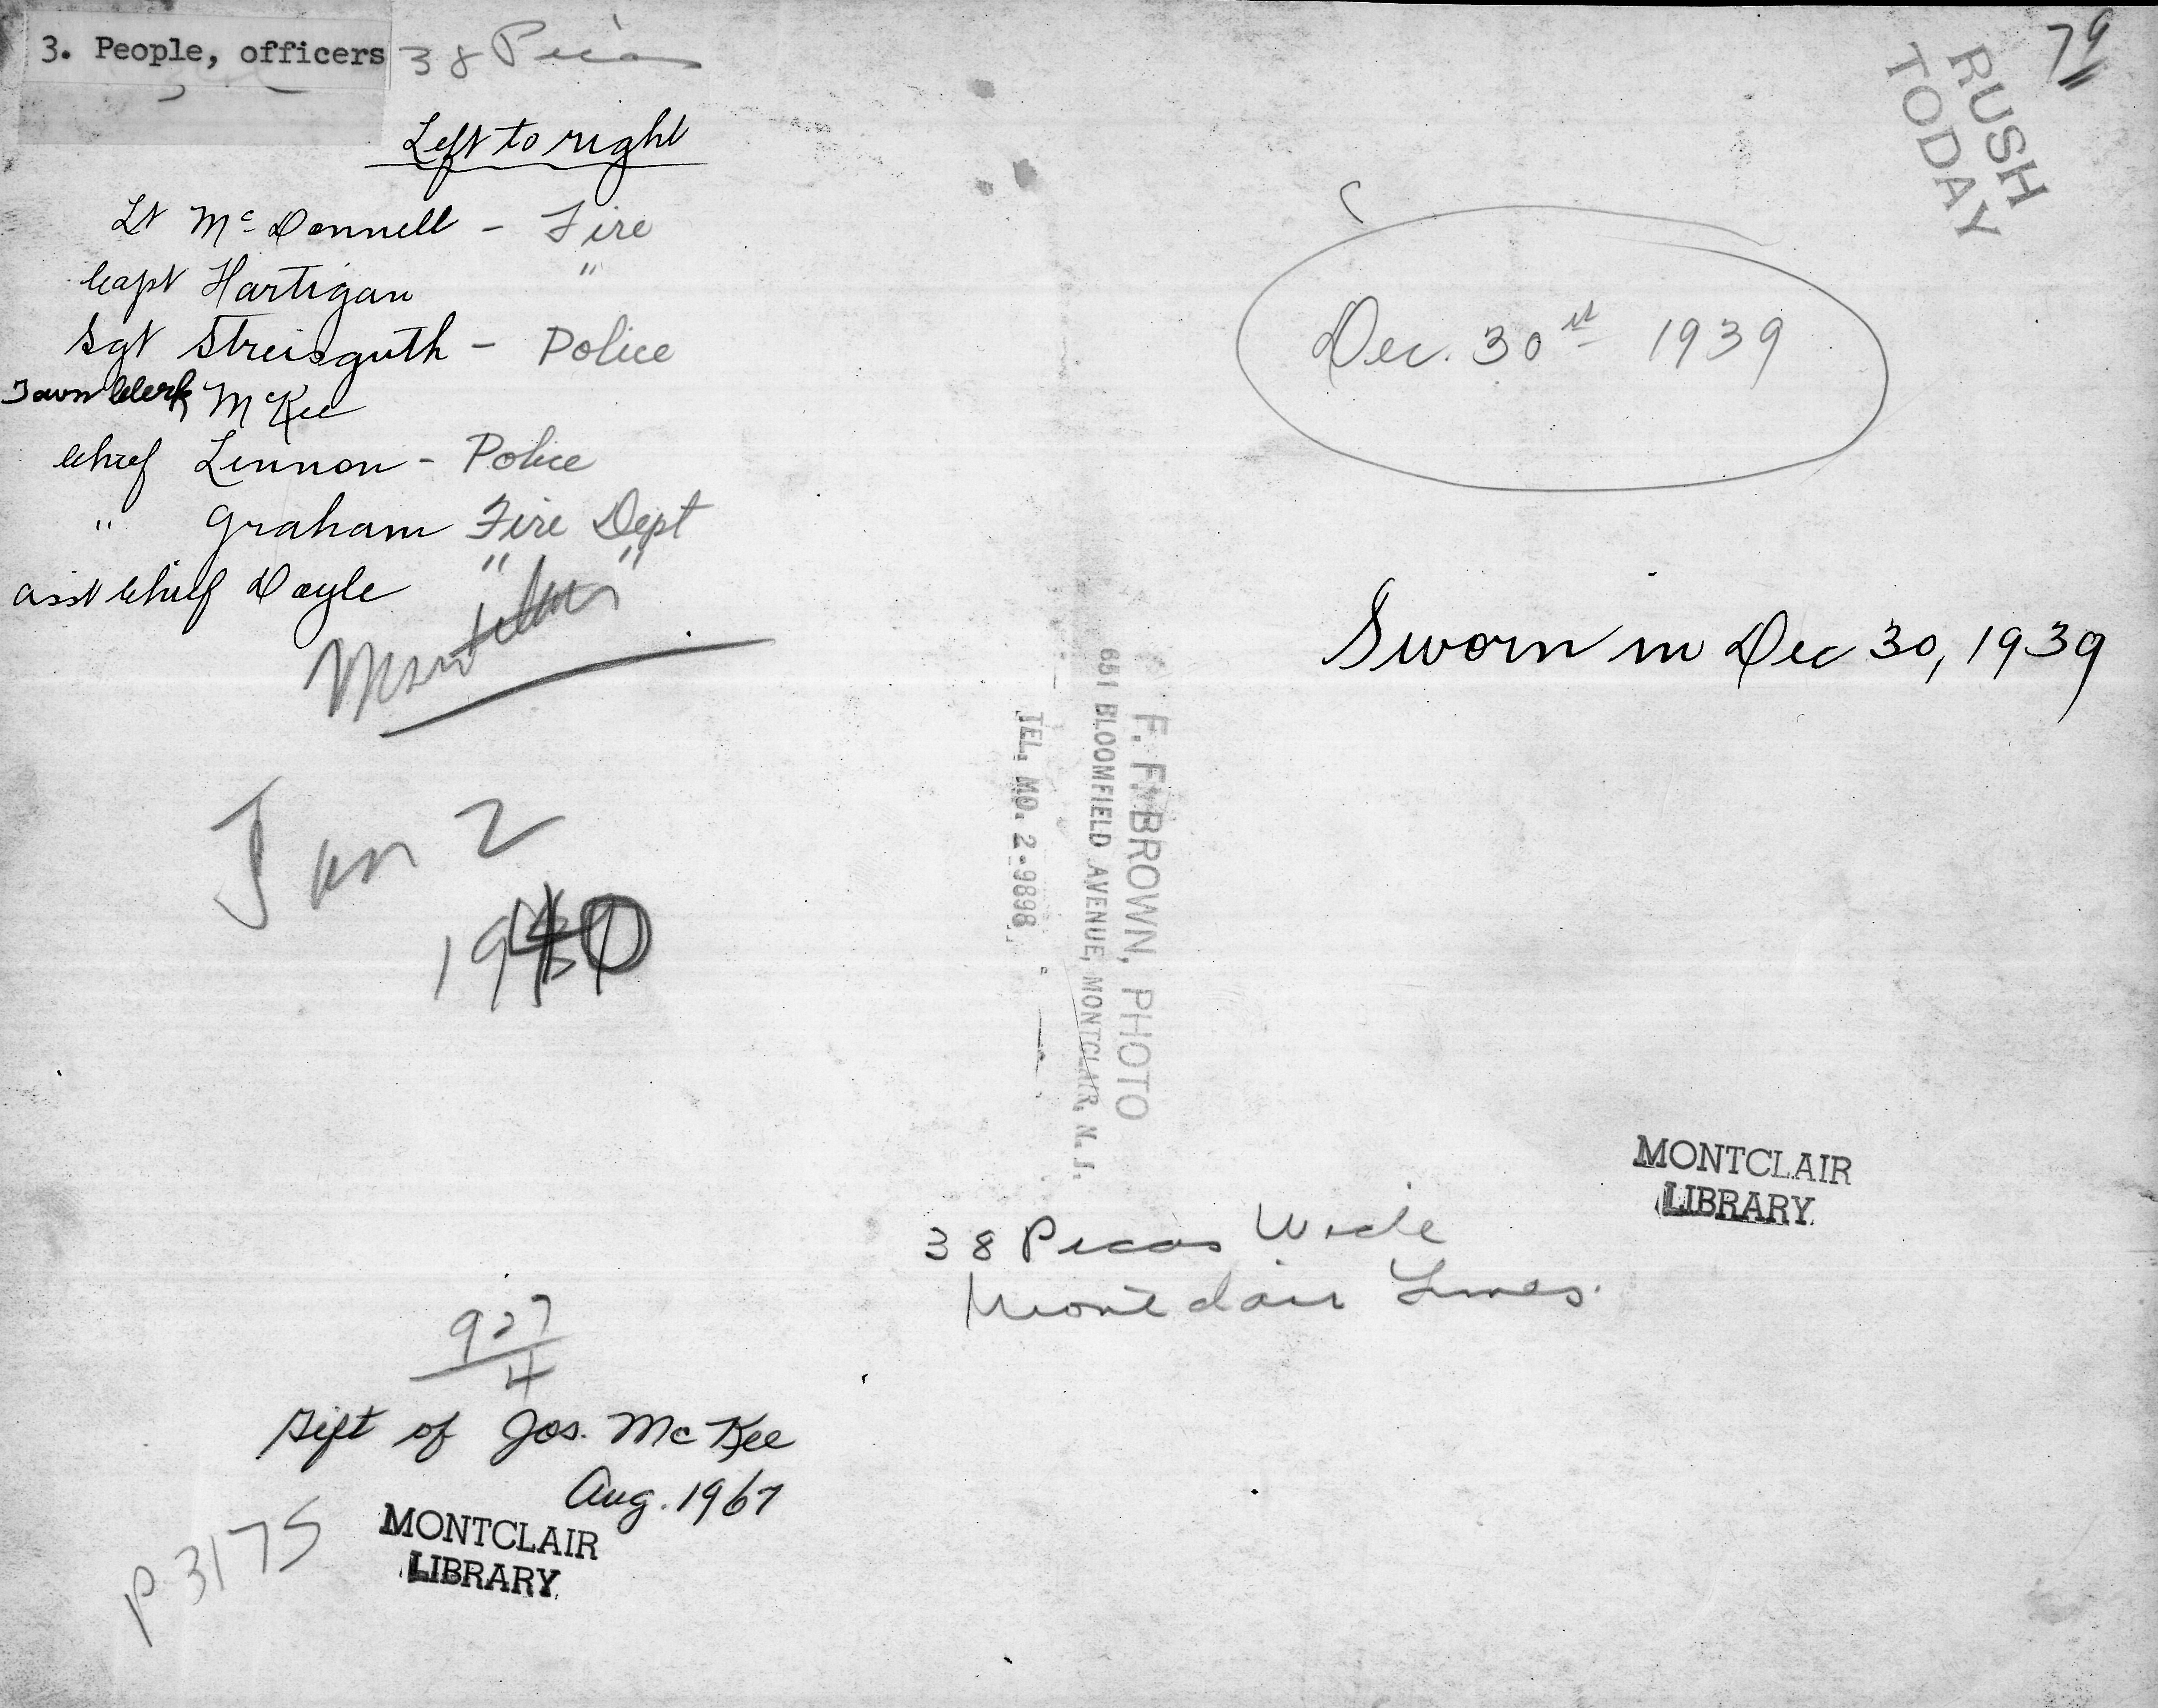 3. People, officers
38 Picas
79
RUSH
TODAY
Left to right
Lt McDonnell - Fire
Capt Hartigan "
Sgt Streisguth - Police
Town Clerk McKee
Chief Lennon - Police
" Graham Fire Dept
Asst Chief Doyle " "
Dec. 30st 1939
Sworn in Dec 30, 1939
Jan 2
1940
F. F. BROWN, PHOTO
651 BLOOMFIELD AVENUE, MONTCLAIR, N. J.
TEL. MO. 2-9898
MONTCLAIR
LIBRARY
38 Picas Wide
Montclair Times.
927
4
Gift of Jos. McKee
Aug. 1967
MONTCLAIR
LIBRARY
P 3175